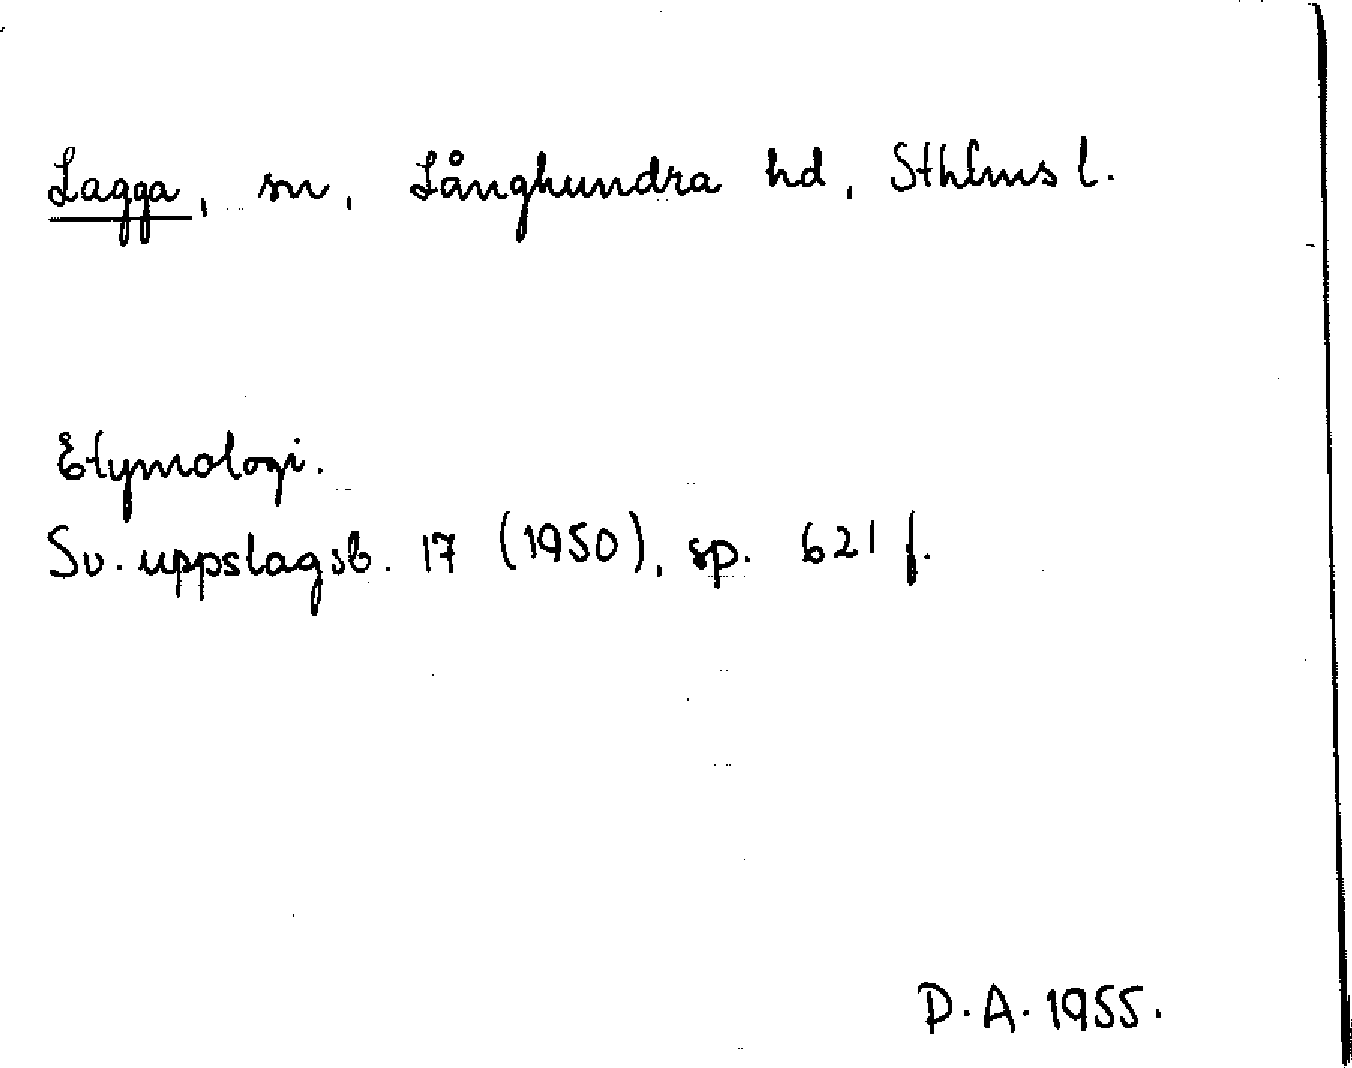 Lagga, sn, Långhundra hd, Sthlms l.
Etymologi.
Sv. uppslagsb. 17 (1950), sp. 621 f.
D.A. 1955.